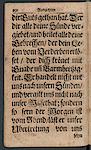 dir Guts gethan hat. Der
dir alle deine Sünde ver-
giebet, und heilet alle deine
Gebrechen, der dein Le-
ben vom Verderben erlö-
set, der dich krönet mit
Gnade und Barmherzig-
keit. Er handelt nicht mit
uns nach unsern Sünden,
und vergilt uns nicht nach
unser Missethat; sondern
so fern der Morgen ist
vom Abend, läst er unsre
Ubertretung von uns